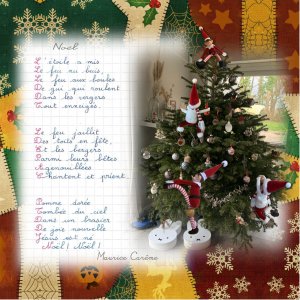 Noël
L'étoile a mis
Le feu au buis,
Le feu aux boules
De gui qui roulent
Dans les vergers
Tout enneigés.
Le feu jaillit
Des toits en fête,
Et les bergers
Parmi leurs bêtes
Agenouillées
Chantent et prient.
Pomme dorée
Tombée du ciel
Dans un brasier
De joie nouvelle
Jésus est né
Noël ! Noël !
Maurice Carême